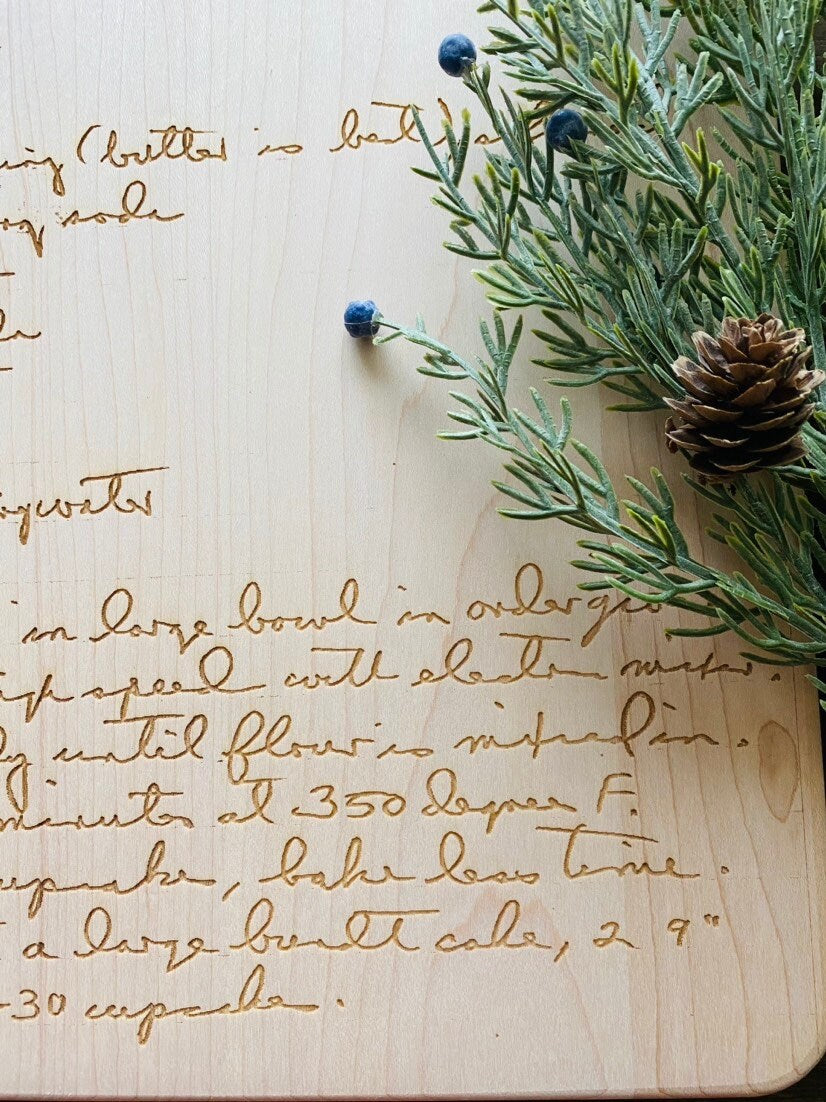 ing (butter is best)
ing soda
ingwater
in large bowl in order
high speed with electric mixer.
ly until flour is mixed in.
minutes at 350 degrees F.
cupcakes, bake less time.
a large bundt cake, 2 9"
-30 cupcakes.